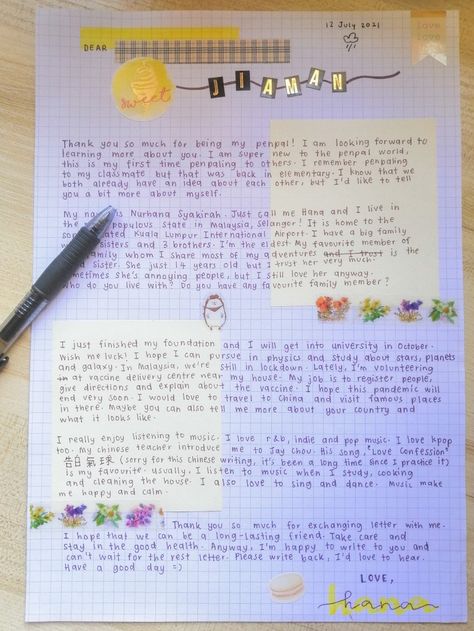 12 July 2021
Love
Love
DEAR
JIAMAN
sweet
Thank you so much for being my penpal! I am looking forward to
learning more about you. I am super new to the penpal world,
this is my first time penpaling to others. I remember penpaling
to my classmate but that was back in elementary. I know that we
both already have an idea about each other, but I'd like to tell
you a bit more about myself.
My name is Nurhana Syakirah. Just call me Hana and I live in
the populous state in Malaysia, Selangor! It is home to the
Kuala Lumpur International Airport. I have a big family
sisters and 3 brothers. I'm the eldest. My favourite member of
family whom I share most of my adventures and I trust is the
sister. She just 14 years old but I trust her very much.
sometimes She's annoying people, but I still love her anyway.
who do you live with? Do you have any favourite family member?
I just finished my foundation and I will get into university in October.
Wish me luck! I hope I can pursue in physics and study about stars, planets
and galaxy. In Malaysia, we're still in lockdown. Lately, I'm volunteering
at vaccine delivery centre near my house. My job is to register people,
give directions and explain about the vaccine. I hope this pandemic will
end very soon. I would love to travel to China and visit famous places
in there. Maybe you can also tell me more about your country and
what it looks like.
I really enjoy listening to music. I love r&b, indie and pop music. I love kpop
too. My chinese teacher introduce me to Jay Chou. His song, "Love Confession"
告白氣球 (sorry for this chinese writing, it's been a long time since I practice it)
is my favourite. usually, I listen to music when I study, cooking
and cleaning the house. I also love to sing and dance. Music make
me happy and calm.
Thank you so much for exchanging letter with me.
I hope that we can be a long-lasting friend. Take care and
stay in the good health. Anyway, I'm happy to write to you and
can't wait for the rest letter. Please write back, I'd love to hear.
Have a good day =)
LOVE,
hana